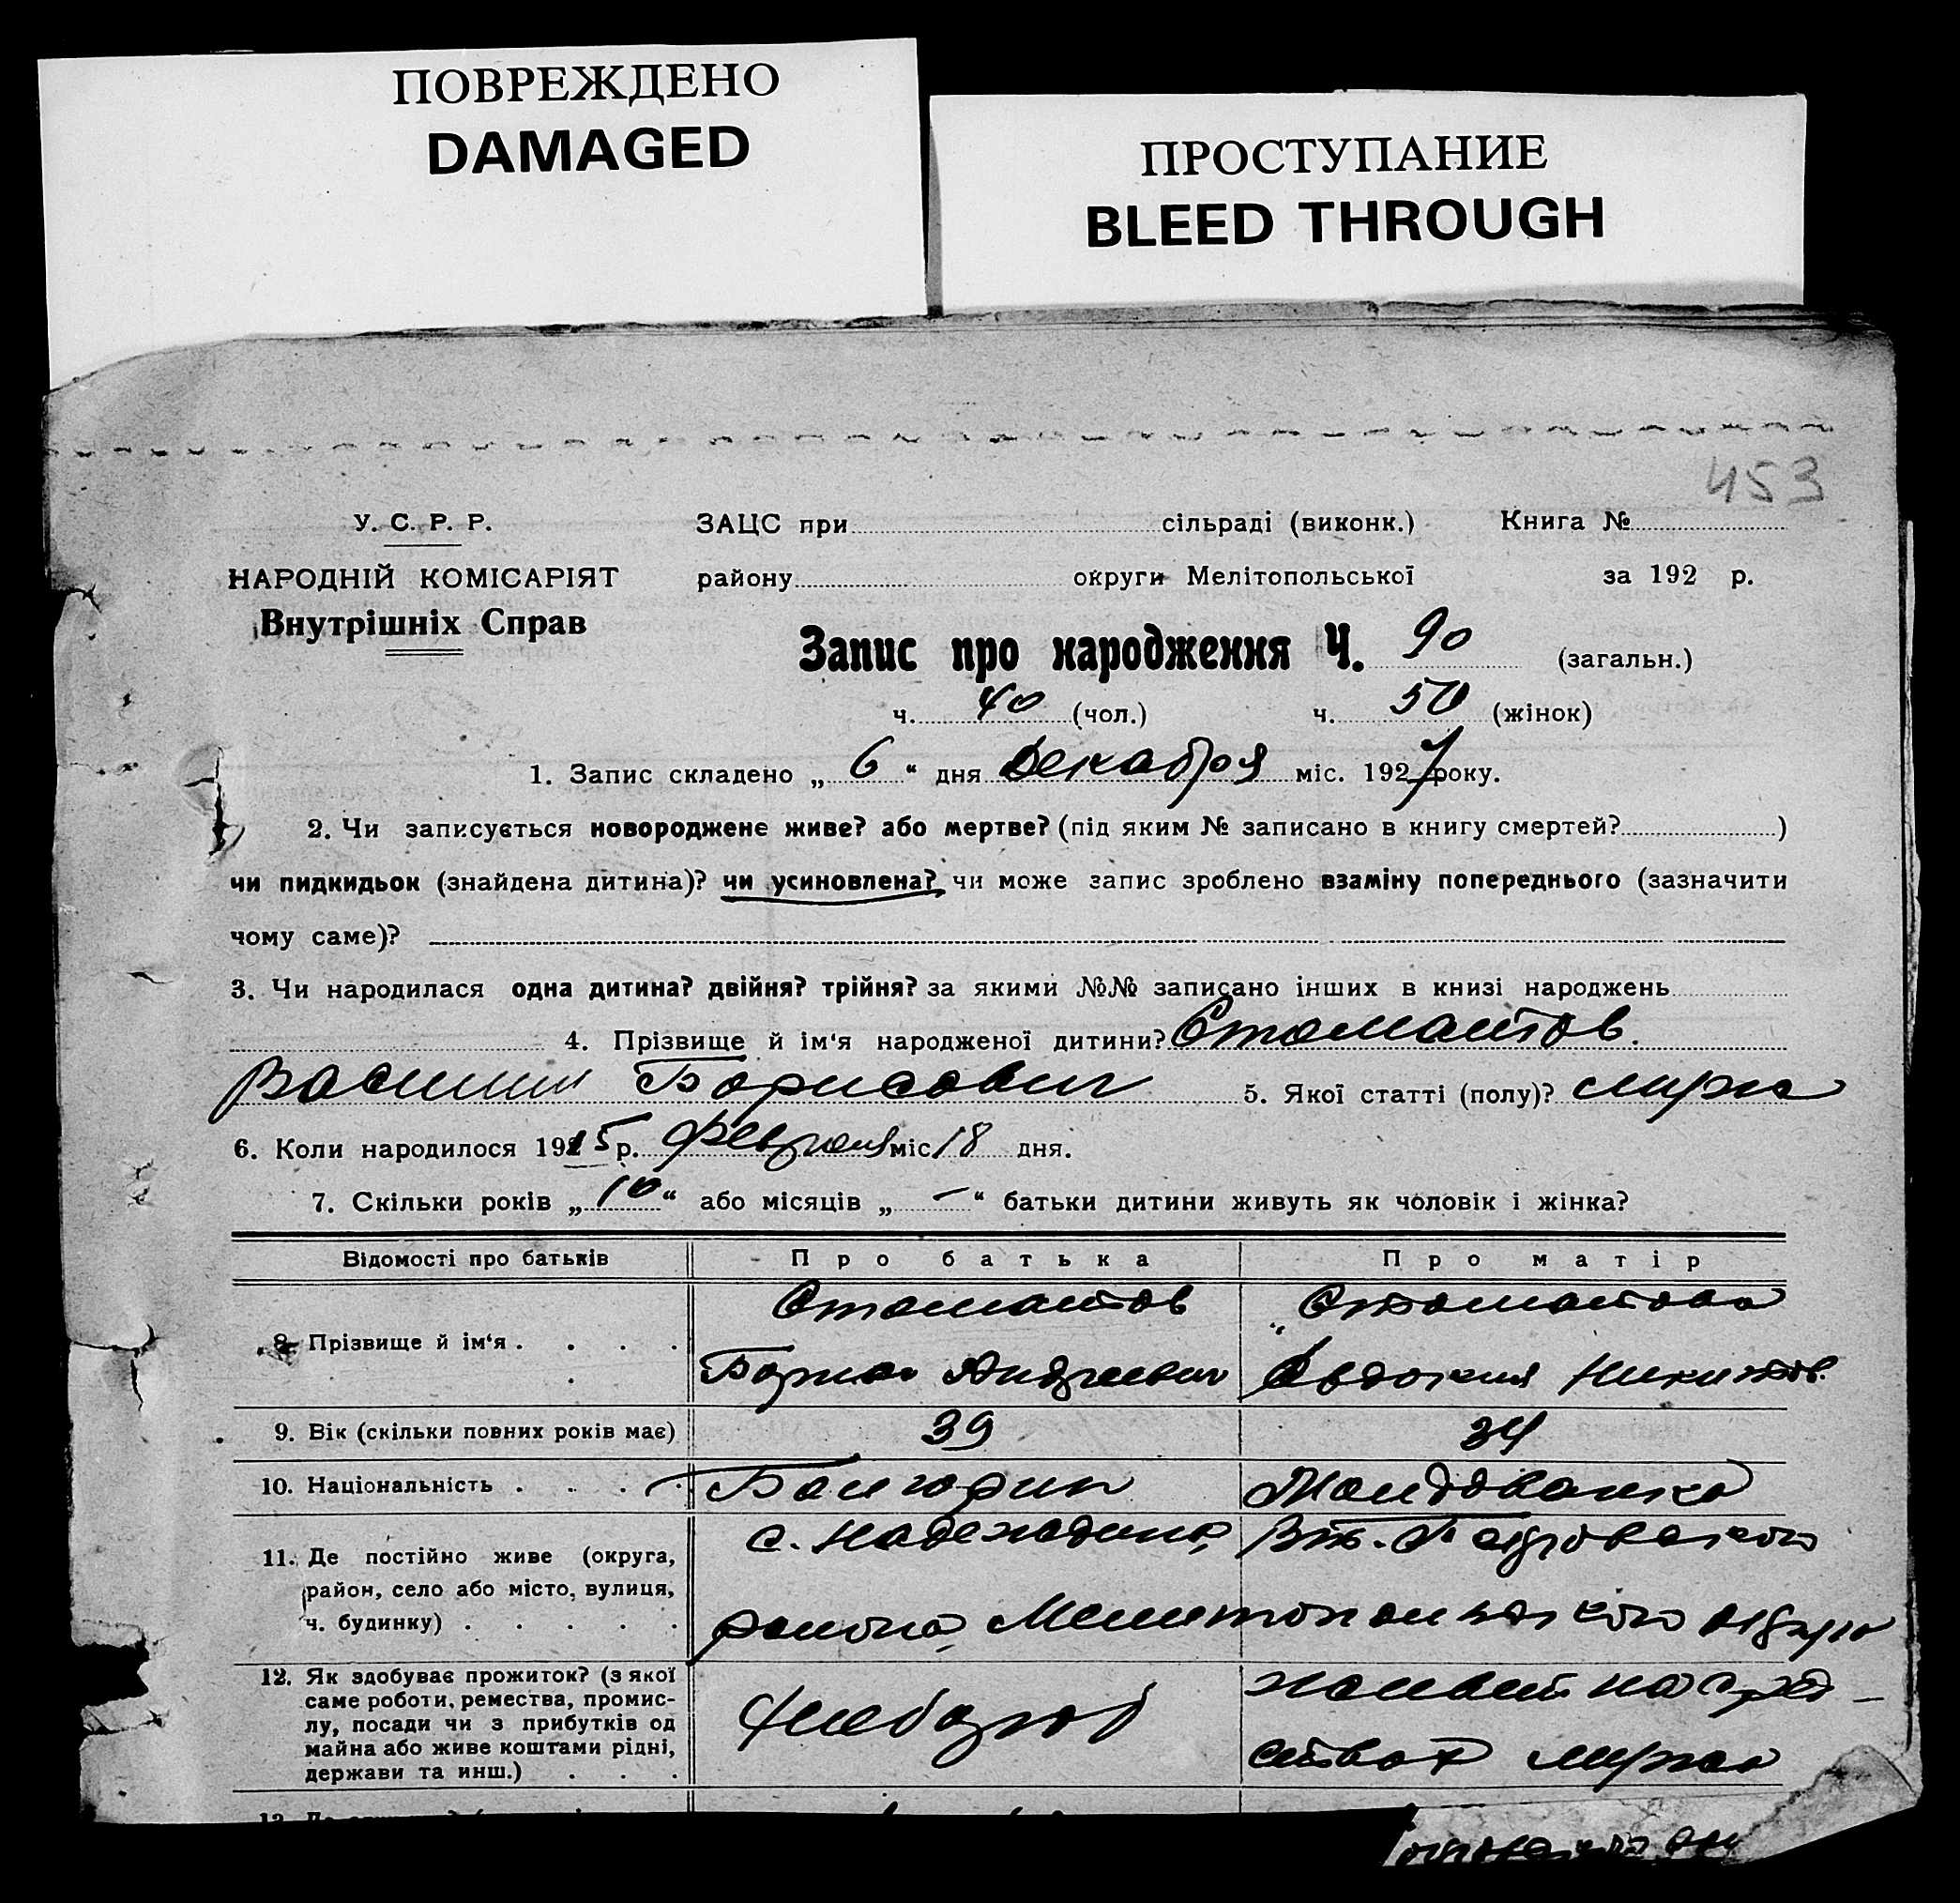 ПОВРЕЖДЕНО
DAMAGED
ПРОСТУПАНИЕ
BLEED THROUGH
453
У. С. Р. Р.
ЗАЦС при сільраді (виконк.) Книга №
НАРОДНІЙ КОМІСАРІЯТ
району округи Мелітопольської за 192 р.
Внутрішніх Справ
Запис про народження Ч. 90 (загальн.)
ч. 40 (чол.) ч. 50 (жінок)
1. Запис складено „ 6 “ дня Декабря міс. 1927 року.
2. Чи записується новороджене живе? або мертве? (під яким № записано в книгу смертей? )
чи пидкидьок (знайдена дитина)? чи усиновлена? чи може запис зроблено взаміну попереднього (зазначити
чому саме)?
3. Чи народилася одна дитина? двійня? трійня? за якими №№ записано інших в книзі народжень
4. Прізвище й ім‘я народженої дитини? Стоматов.
Василий Борисович 5. Якої статті (полу)? мужс
6. Коли народилося 1915 р. Февраля міс 18 дня.
7. Скільки років „ 10 “ або місяців „ — “ батьки дитини живуть як чоловік і жінка?
Відомості про батьків Про батька Про матір
8. Прізвище й ім‘я . . . .
Стоматов
Борис Андреевич
Стоматова
Евдокия Никитов.
9. Вік (скільки повних років має) 39 34
10. Національність . . . . Болгарин Молдованка
11. Де постійно живе (округа,
район, село або місто, вулиця,
ч. будинку) . . . . .
с. Надеждино, Вт.-Петровского
района, Мелитопольского округа
12. Як здобуває прожиток? (з якої
саме роботи, ремества, промис-
лу, посади чи з прибутків од
майна або живе коштами рідні,
держави та инш.) . . .
Хлебороб
на сред-
ствах мужа